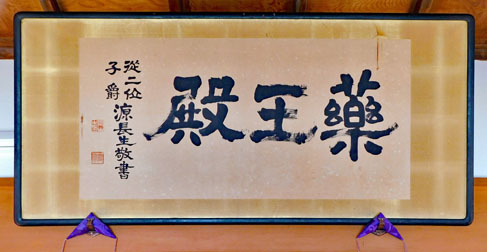 藥王殿
從二位
子爵 源長生敬書